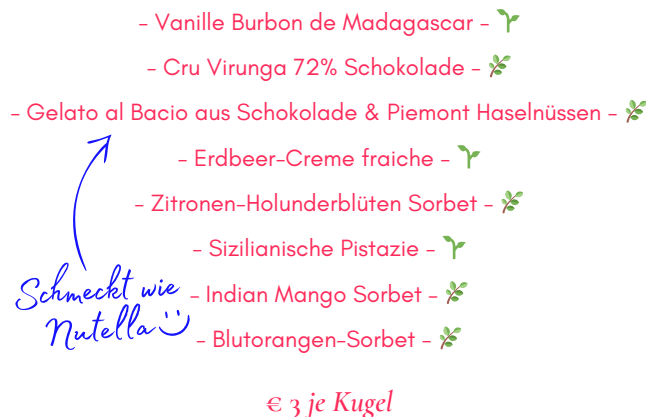 - Vanille Burbon de Madagascar -
- Cru Virunga 72% Schokolade -
- Gelato al Bacio aus Schokolade & Piemont Haselnüssen -
- Erdbeer-Creme fraiche -
- Zitronen-Holunderblüten Sorbet -
- Sizilianische Pistazie -
- Indian Mango Sorbet -
- Blutorangen-Sorbet -
Schmeckt wie
Nutella
€ 3 je Kugel